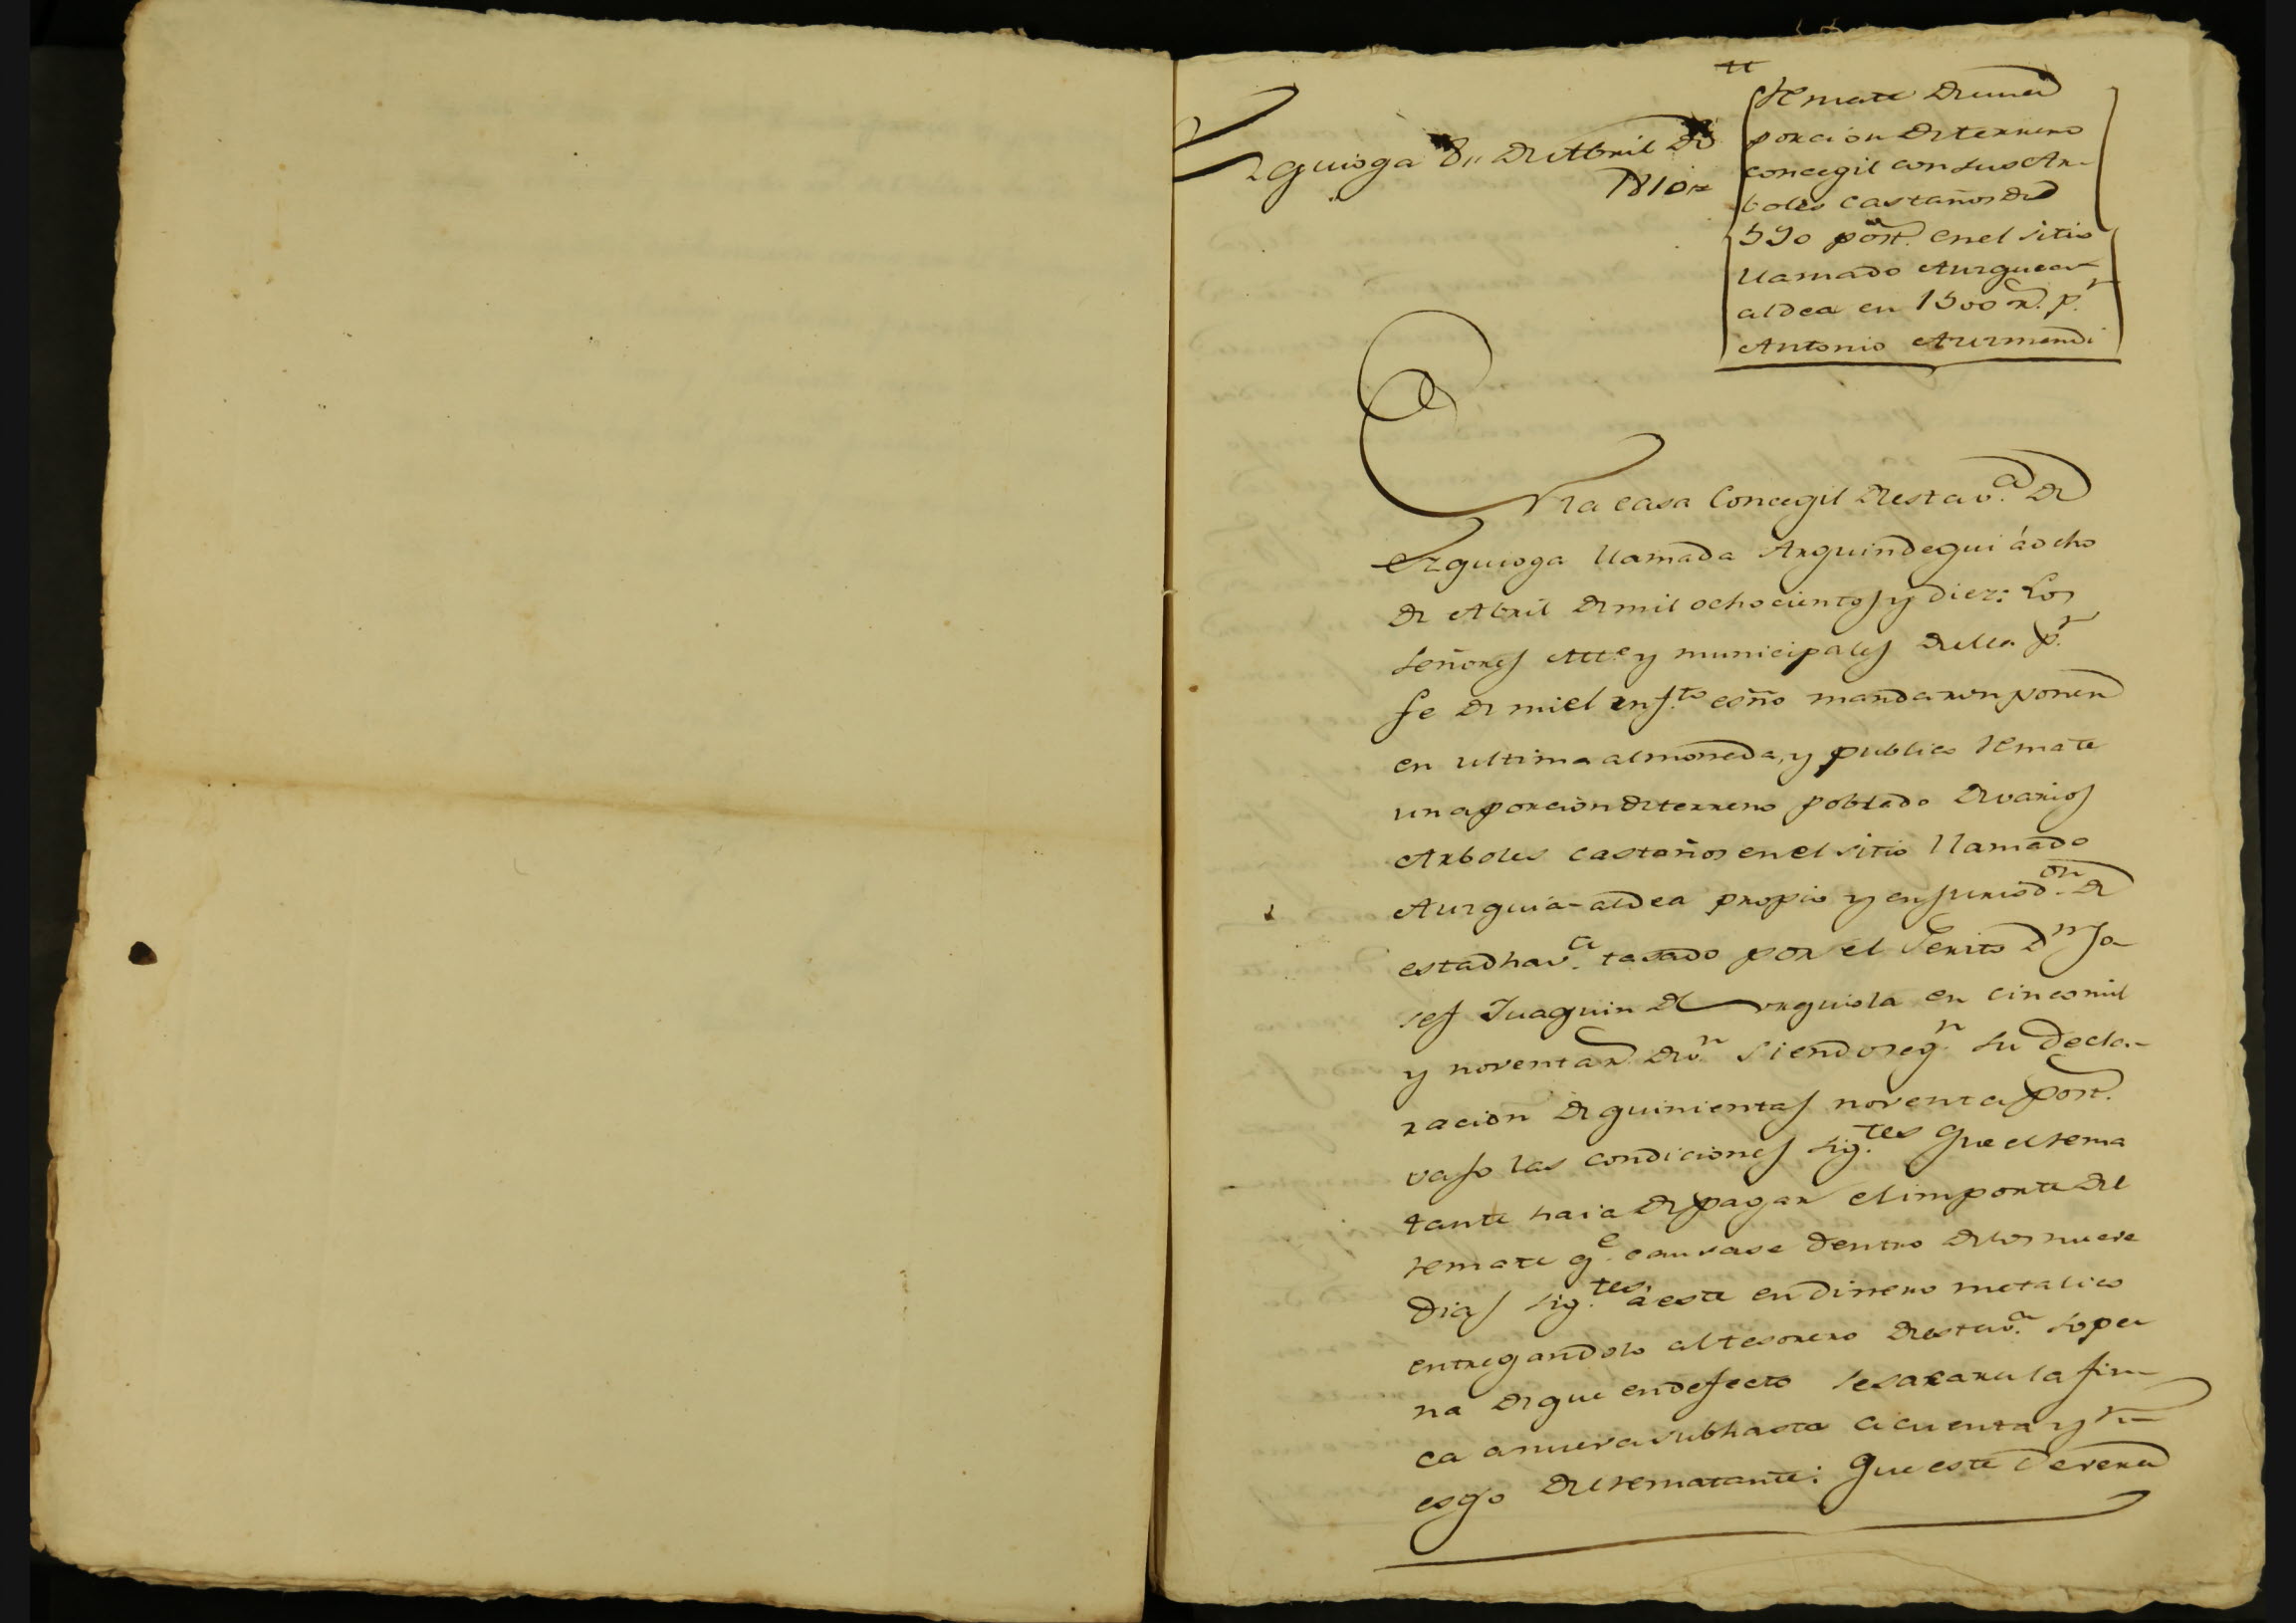 Ezquioga 8,, de Abril de
1810,,
Remate de una
porcion de terreno
concegil con sus Ar-
boles castaños de
590 post. en el sitio
llamado Aurguea-
aldea en 1500 r.s p.r
Antonio Aurmendi
En la casa Concegil de esta v.a de
Ezquioga llamada Arguindegui á ocho
de Abril de mil ochocientos y diez: Los
señores Alle. y municipales de ella p.r
fe de mi el infr.to esño mandaron poner
en ultima almoneda, y publico remate
una porcion de terreno poblado de varios
Arboles castaños en el sitio llamado
Aurguia-aldea propio y en jurisd.on de
esta dha v.a tasado por el Perito D.n Jo-
sef Juaquin de Urguiola en cinco mil
y noventa r.s de v.n siendo seg.n su decla-
racion de quinientas noventa post.
vajo las condiciones sig.tes Que el rema
tante haia de pagar el importe del
remate q.e causase dentro de los nueve
dias sig.tes á este en dinero metalico
entregandolo al tesorero de esta v.a so pe
na de que en defecto se sacara la fin-
ca a nueva subhasta a cuenta y ri-
esgo del rematante: Que este devera